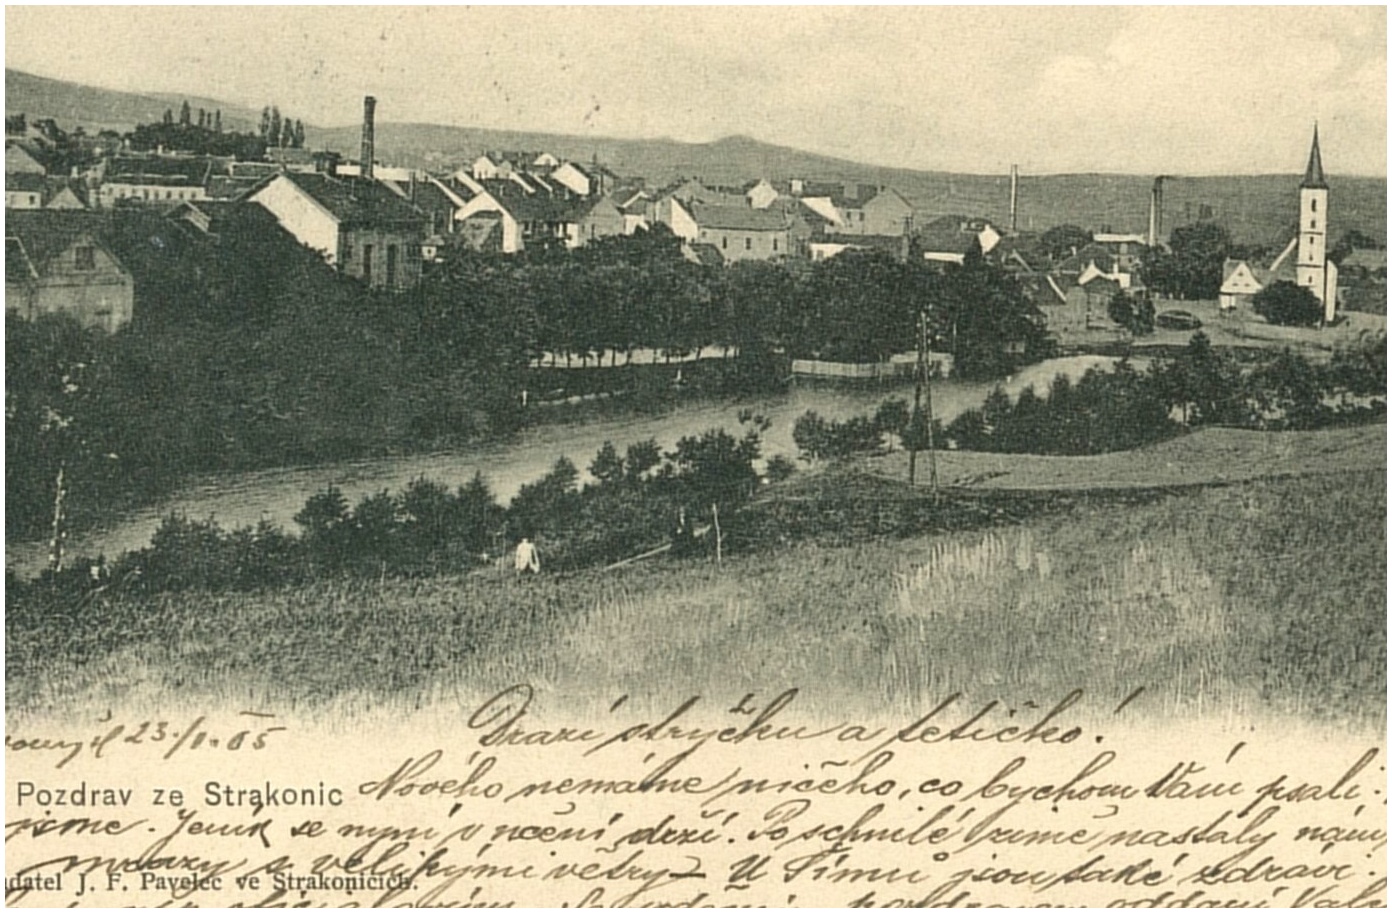 23./I. 05
Drazí strýčku a tetičko!
Pozdrav ze Strakonic
Nového nemáme ničeho, co bychom Vám psali.
jsme. Jeník se nyní v učení drží. Po schnilé zimě nastaly
mrazy s velikými větry – U Šímů jsou také zdrávi.
datel J. F. Pavelec ve Strakonicích.